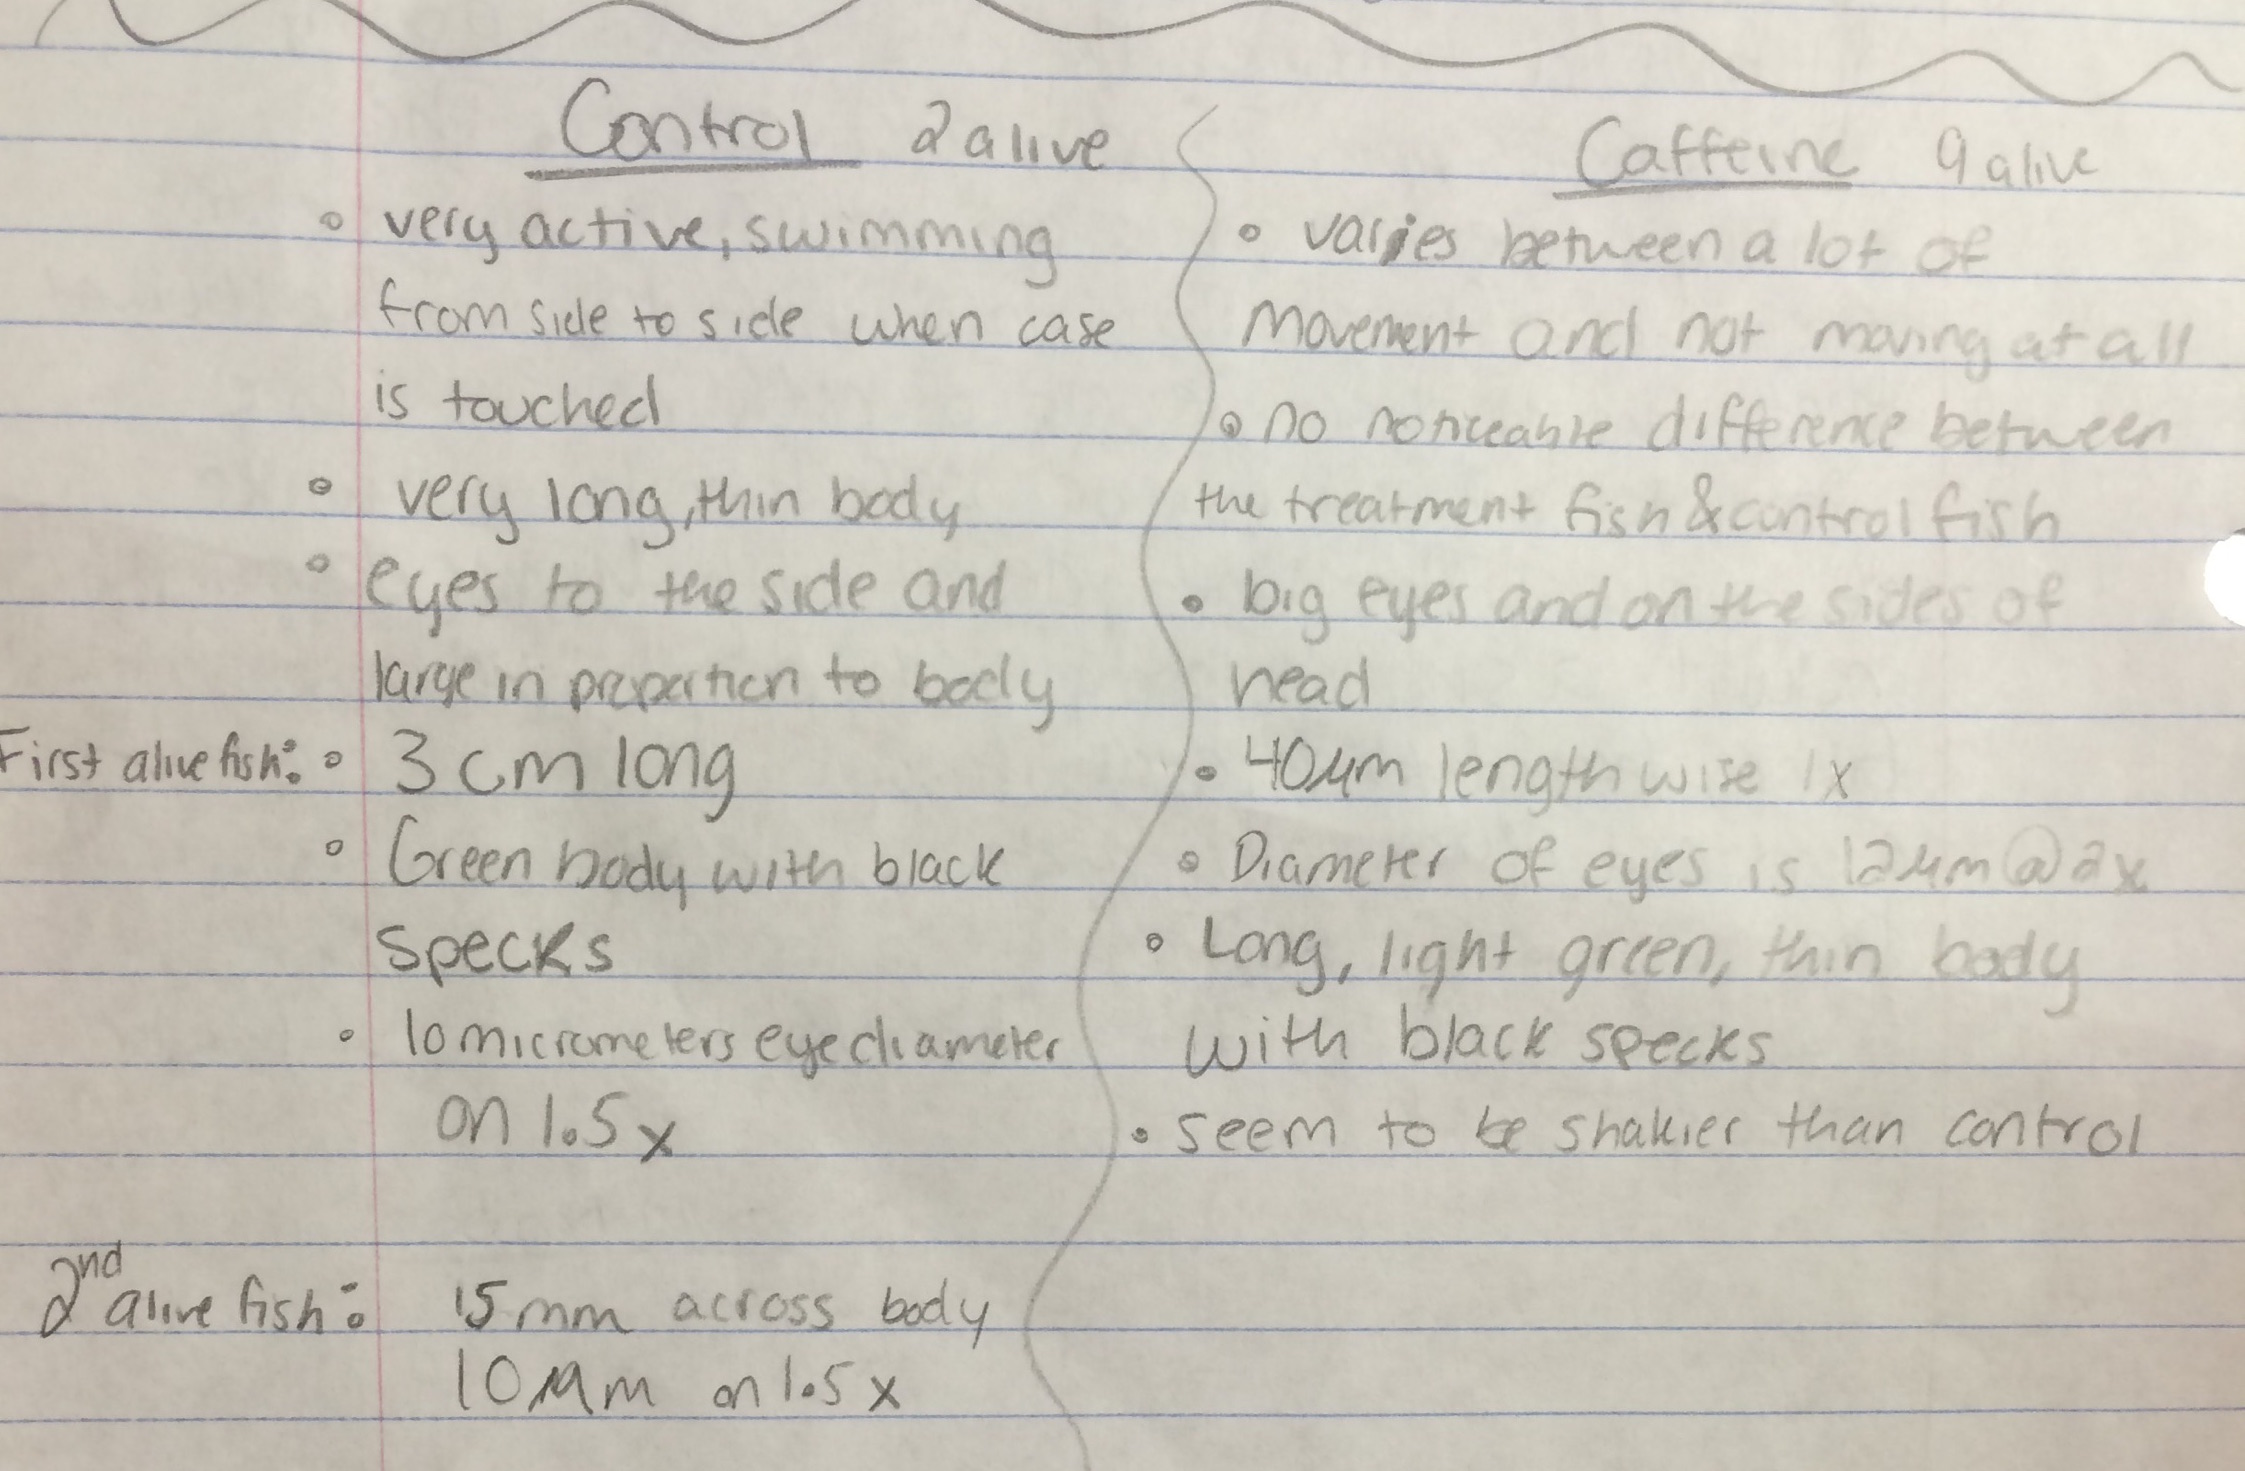 Control 2 alive
• very active, swimming
from side to side when case
is touched
• very long, thin body
• eyes to the side and
large in proportion to body
First alive fish: • 3 cm long
• Green body with black
specks
• 10 micrometers eye diameter
on 1.5x
2nd alive fish: 15 mm across body
10 μm on 1.5x
Caffeine 9 alive
• varies between a lot of
movement and not moving at all
• no noticeable difference between
the treatment fish & control fish
• big eyes and on the sides of
head
• 40μm length wise 1x
• Diameter of eyes is 12μm @ 2x
• Long, light green, thin body
with black specks
• seem to be shakier than control